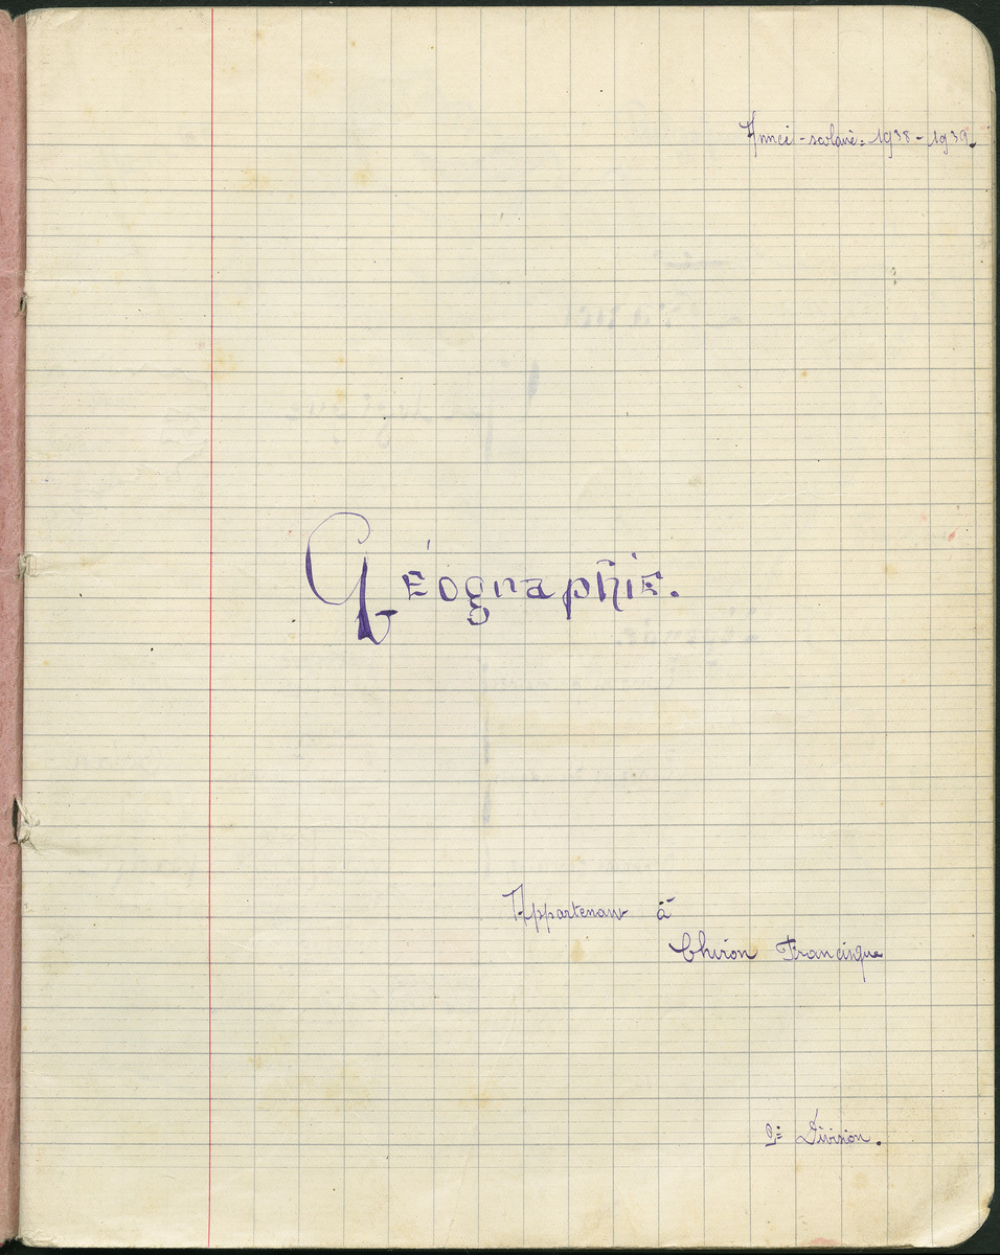 Année-scolaire: 1938-1939.
Géographie.
Appartenant à
Chiron Francisque
Division.